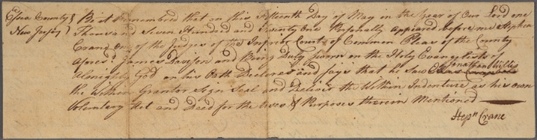 Essex County } Be it Remembered that on this fifteenth Day of May in the year of Our Lord one
New Jersey } Thousand Seven Hundred and Seventy One Personally Appeared before me Stephen
Crane One of the Judges of the Inferior Court of Common Pleas of the County
Afores. James Lawson and Being Duly Sworn on the Holy Evangelists of
Almighty God on his Oath Declares and Says that he Saw Jonathan
the Within Grantor Sign Seal and Deliver the Within Indenture as his own
Voluntary Act and Deed for the Uses & Purposes therein Mentioned
Stepn Crane